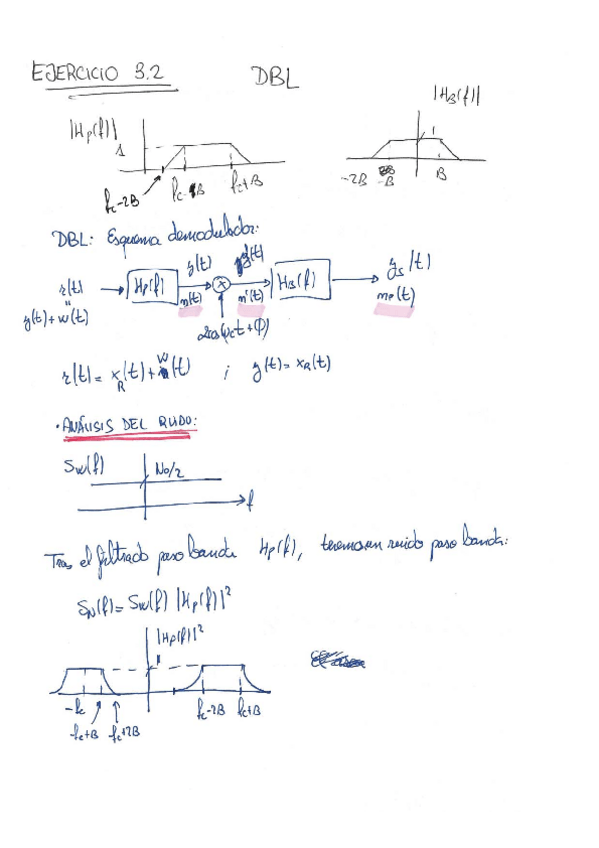 EJERCICIO 3.2 DBL
|Hp(f)| |HB(f)|
1 1
fc-2B fc-B fc+B -2B -B B
DBL: Esquema demodulador:
r(t) Hp(f) y(t) × y'(t) HB(f) ys(t)
y(t)+w(t) n(t) n'(t) ns(t)
2cos(ωct+φ)
r(t) = xR(t) + w(t) ; y(t) = xR(t)
· ANÁLISIS DEL RUIDO:
Sw(f) No/2
f
Tras el filtrado paso banda Hp(f), tenemos un ruido paso banda:
SN(f) = Sw(f) |Hp(f)|²
|Hp(f)|²
1
-fc fc-2B fc+B
-fc+B -fc+2B